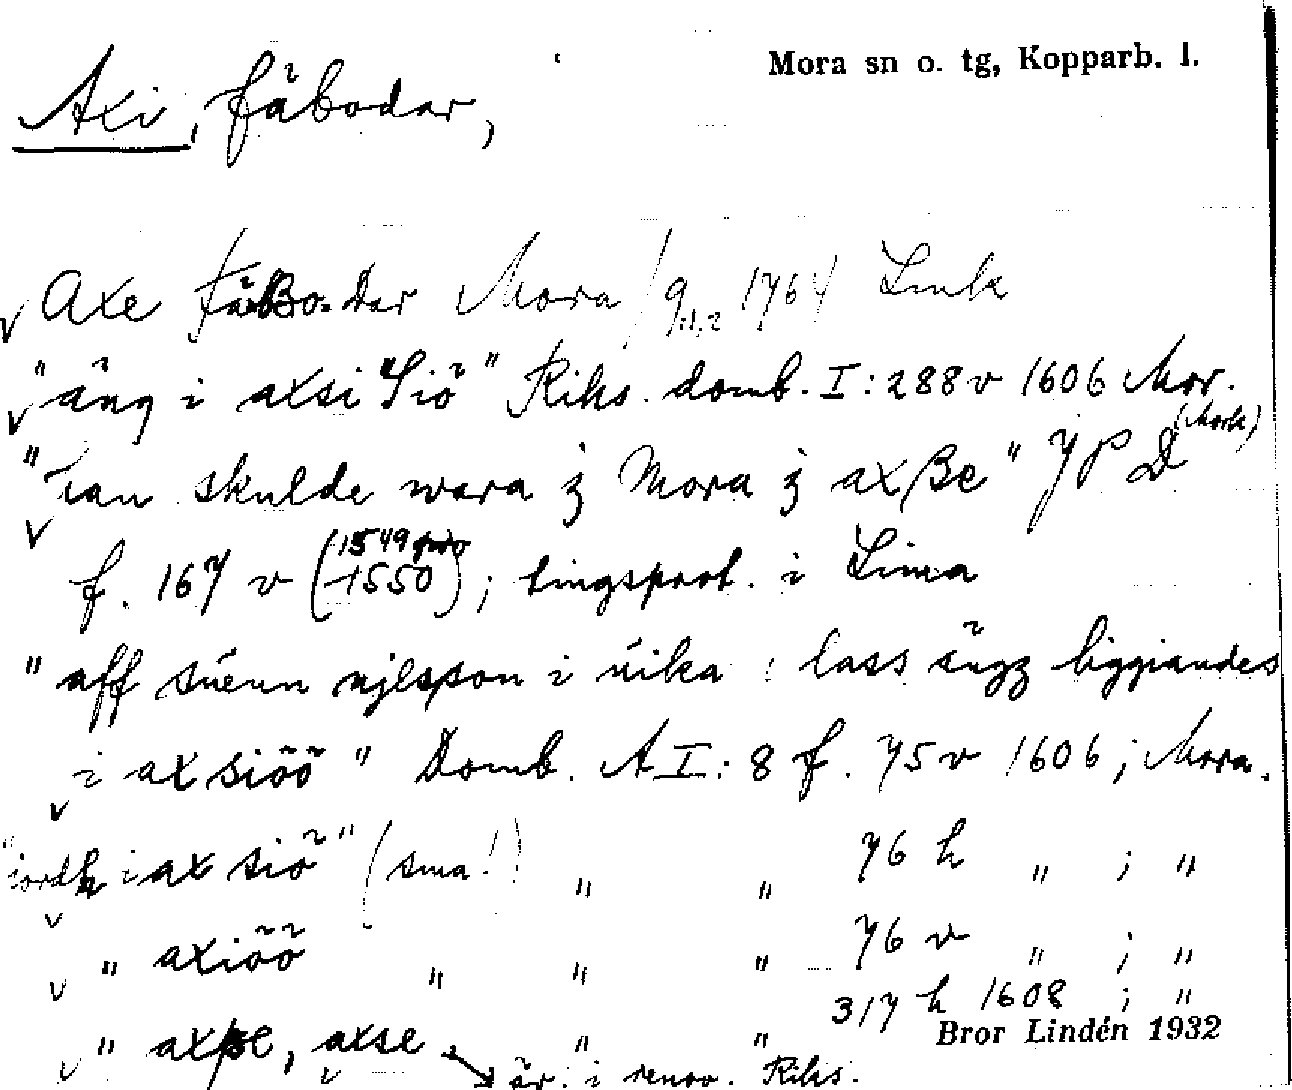 Mora sn o. tg, Kopparb. l.
Axi, fäbodar,
Axe fäBodar Mora 9/11,2 1764 Link
"äng i axsi Siö" Riks. domb. I:288v 1606 Mor.
"ian skulde wara j Mora j axße" JPD (Mork)
f. 167 v (1549 1550); tingsprot. i Lima
"aff suenn njlsson i uika 1 lass ängz liggiandes
i axsiöö" Domb. AI:8 f. 75v 1606; Mora.
"iordh i ax siö" (sma!) " " 76 h " ; "
" axiöö " " " 76 v " ; "
" axße, axse " " 317 h 1608 ; "
Bror Lindén 1932
är i renov. Riks.